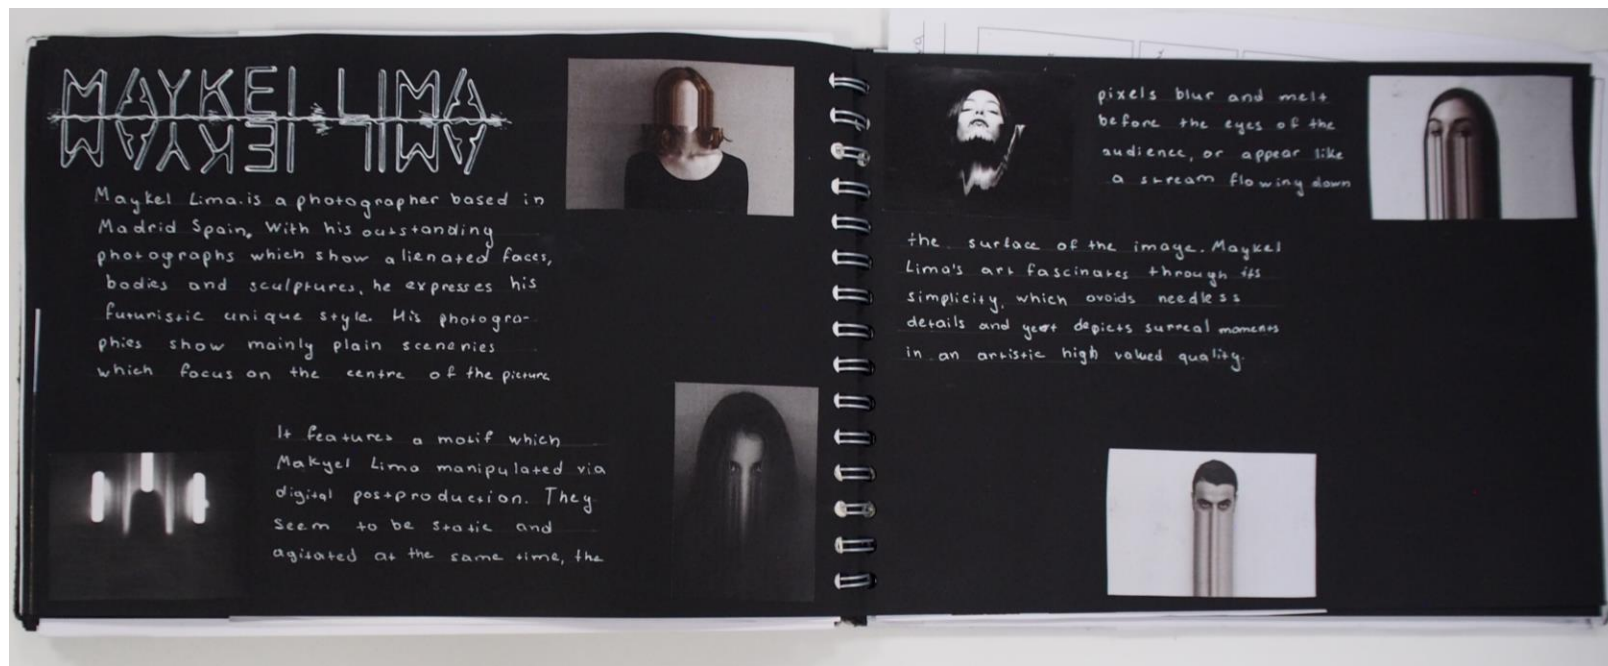 MAYKEL LIMA
Maykel Lima is a photographer based in
Madrid Spain. With his outstanding
photographs which show alienated faces,
bodies and sculptures, he expresses his
futuristic unique style. His photogra-
phies show mainly plain sceneries
which focus on the centre of the picture
It features a motif which
Makyel Lima manipulated via
digital postproduction. They
seem to be static and
agitated at the same time, the
pixels blur and melt
before the eyes of the
audience, or appear like
a stream flowing down
the surface of the image. Maykel
Lima's art fascinates through its
simplicity, which avoids needless
details and yet depicts surreal moments
in an artistic high valued quality.